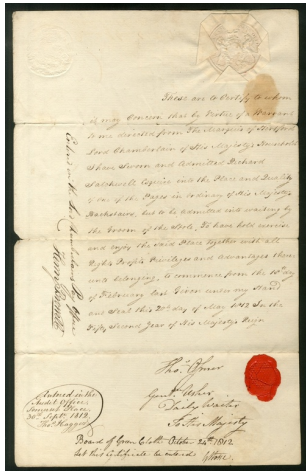 These are to Certify to whom
it may Concern that by Virtue of a Warrant
to me directed from The Marquis of Hertford
Lord Chamberlain of His Majestys Household
I have Sworn and Admitted Richard
Esquire into the Place and Quality
of one of the Pages in Ordinary of His Majestys
Backstairs, but to be admitted into waiting by
the Groom of the Stole. To have hold exercise
and enjoy the said Place together with all
Rights Profits Privileges and Advantages there
unto belonging, to commence from the day
of February last Given under my Hand
and Seal this day of May 1812 In the
Fifty Second Year of His Majestys Reign
Thos.
Gentn. Usher
Daily Waiter
To His Majesty
Entered in the Lord Chamberlains Office
Entered in the
Audit Office
Somerset Place
30th Septr. 1812
Thos.
Board of Green Cloth October 24th 1812
Let this Certificate be entered